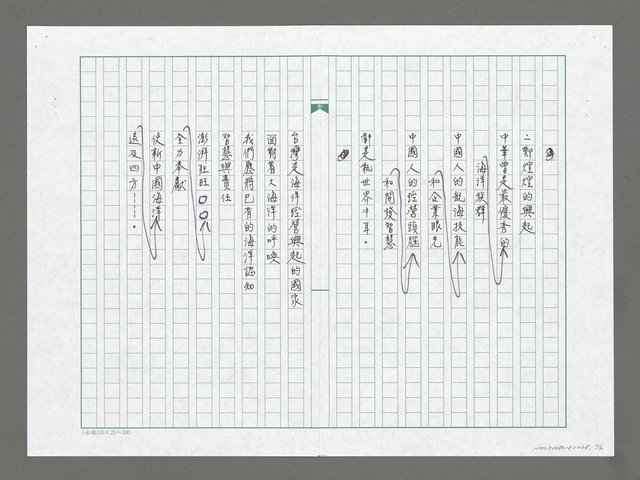 二鄭煌煌的興起
中華曾是最優秀的
海洋族群
中國人的航海技能
和企業眼光
中國人的經營頭腦
和開發智慧
都是執世界牛耳。
台灣是海洋經營興起的國家
面對著大海洋的呼喚
我們應將已有的海洋認知
智慧與責任
澎湃狂旺口口
全力奉獻
使新中國海洋
遠及四方-----。
(永祿)20×25=500